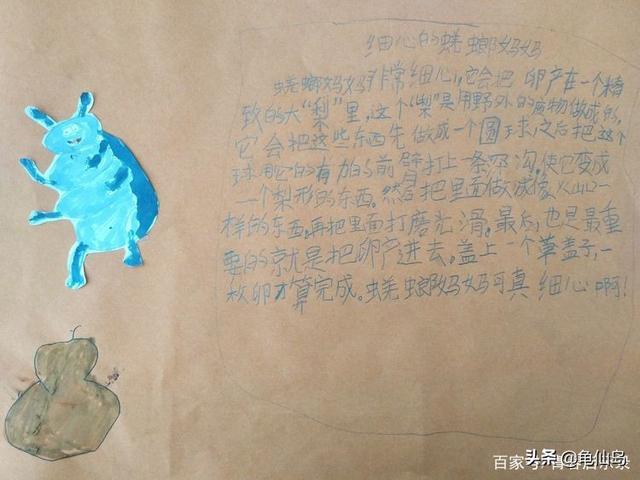 细心的蜣螂妈妈
蜣螂妈妈非常细心,它会把卵产在一个精
致的大“梨”里,这个“梨”是用野外的废物做成的,
它会把这些东西先做成一个圆球,之后把这个
球用它的有力的前臂打上一条沟,使它变成
一个梨形的东西。然后把里面做成像火山口一
样的东西,再把里面打磨光滑。最后,也是最重
要的就是把卵产进去,盖上一个盖子,一
枚卵才算完成。蜣螂妈妈可真细心啊!
头条@龟仙岛
百家号